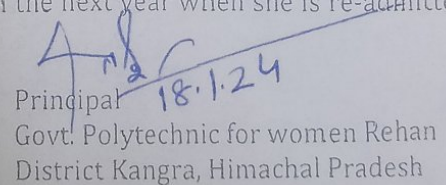 the next year when she is re-admitte
18.1.24
Principal
Govt. Polytechnic for women Rehan
District Kangra, Himachal Pradesh